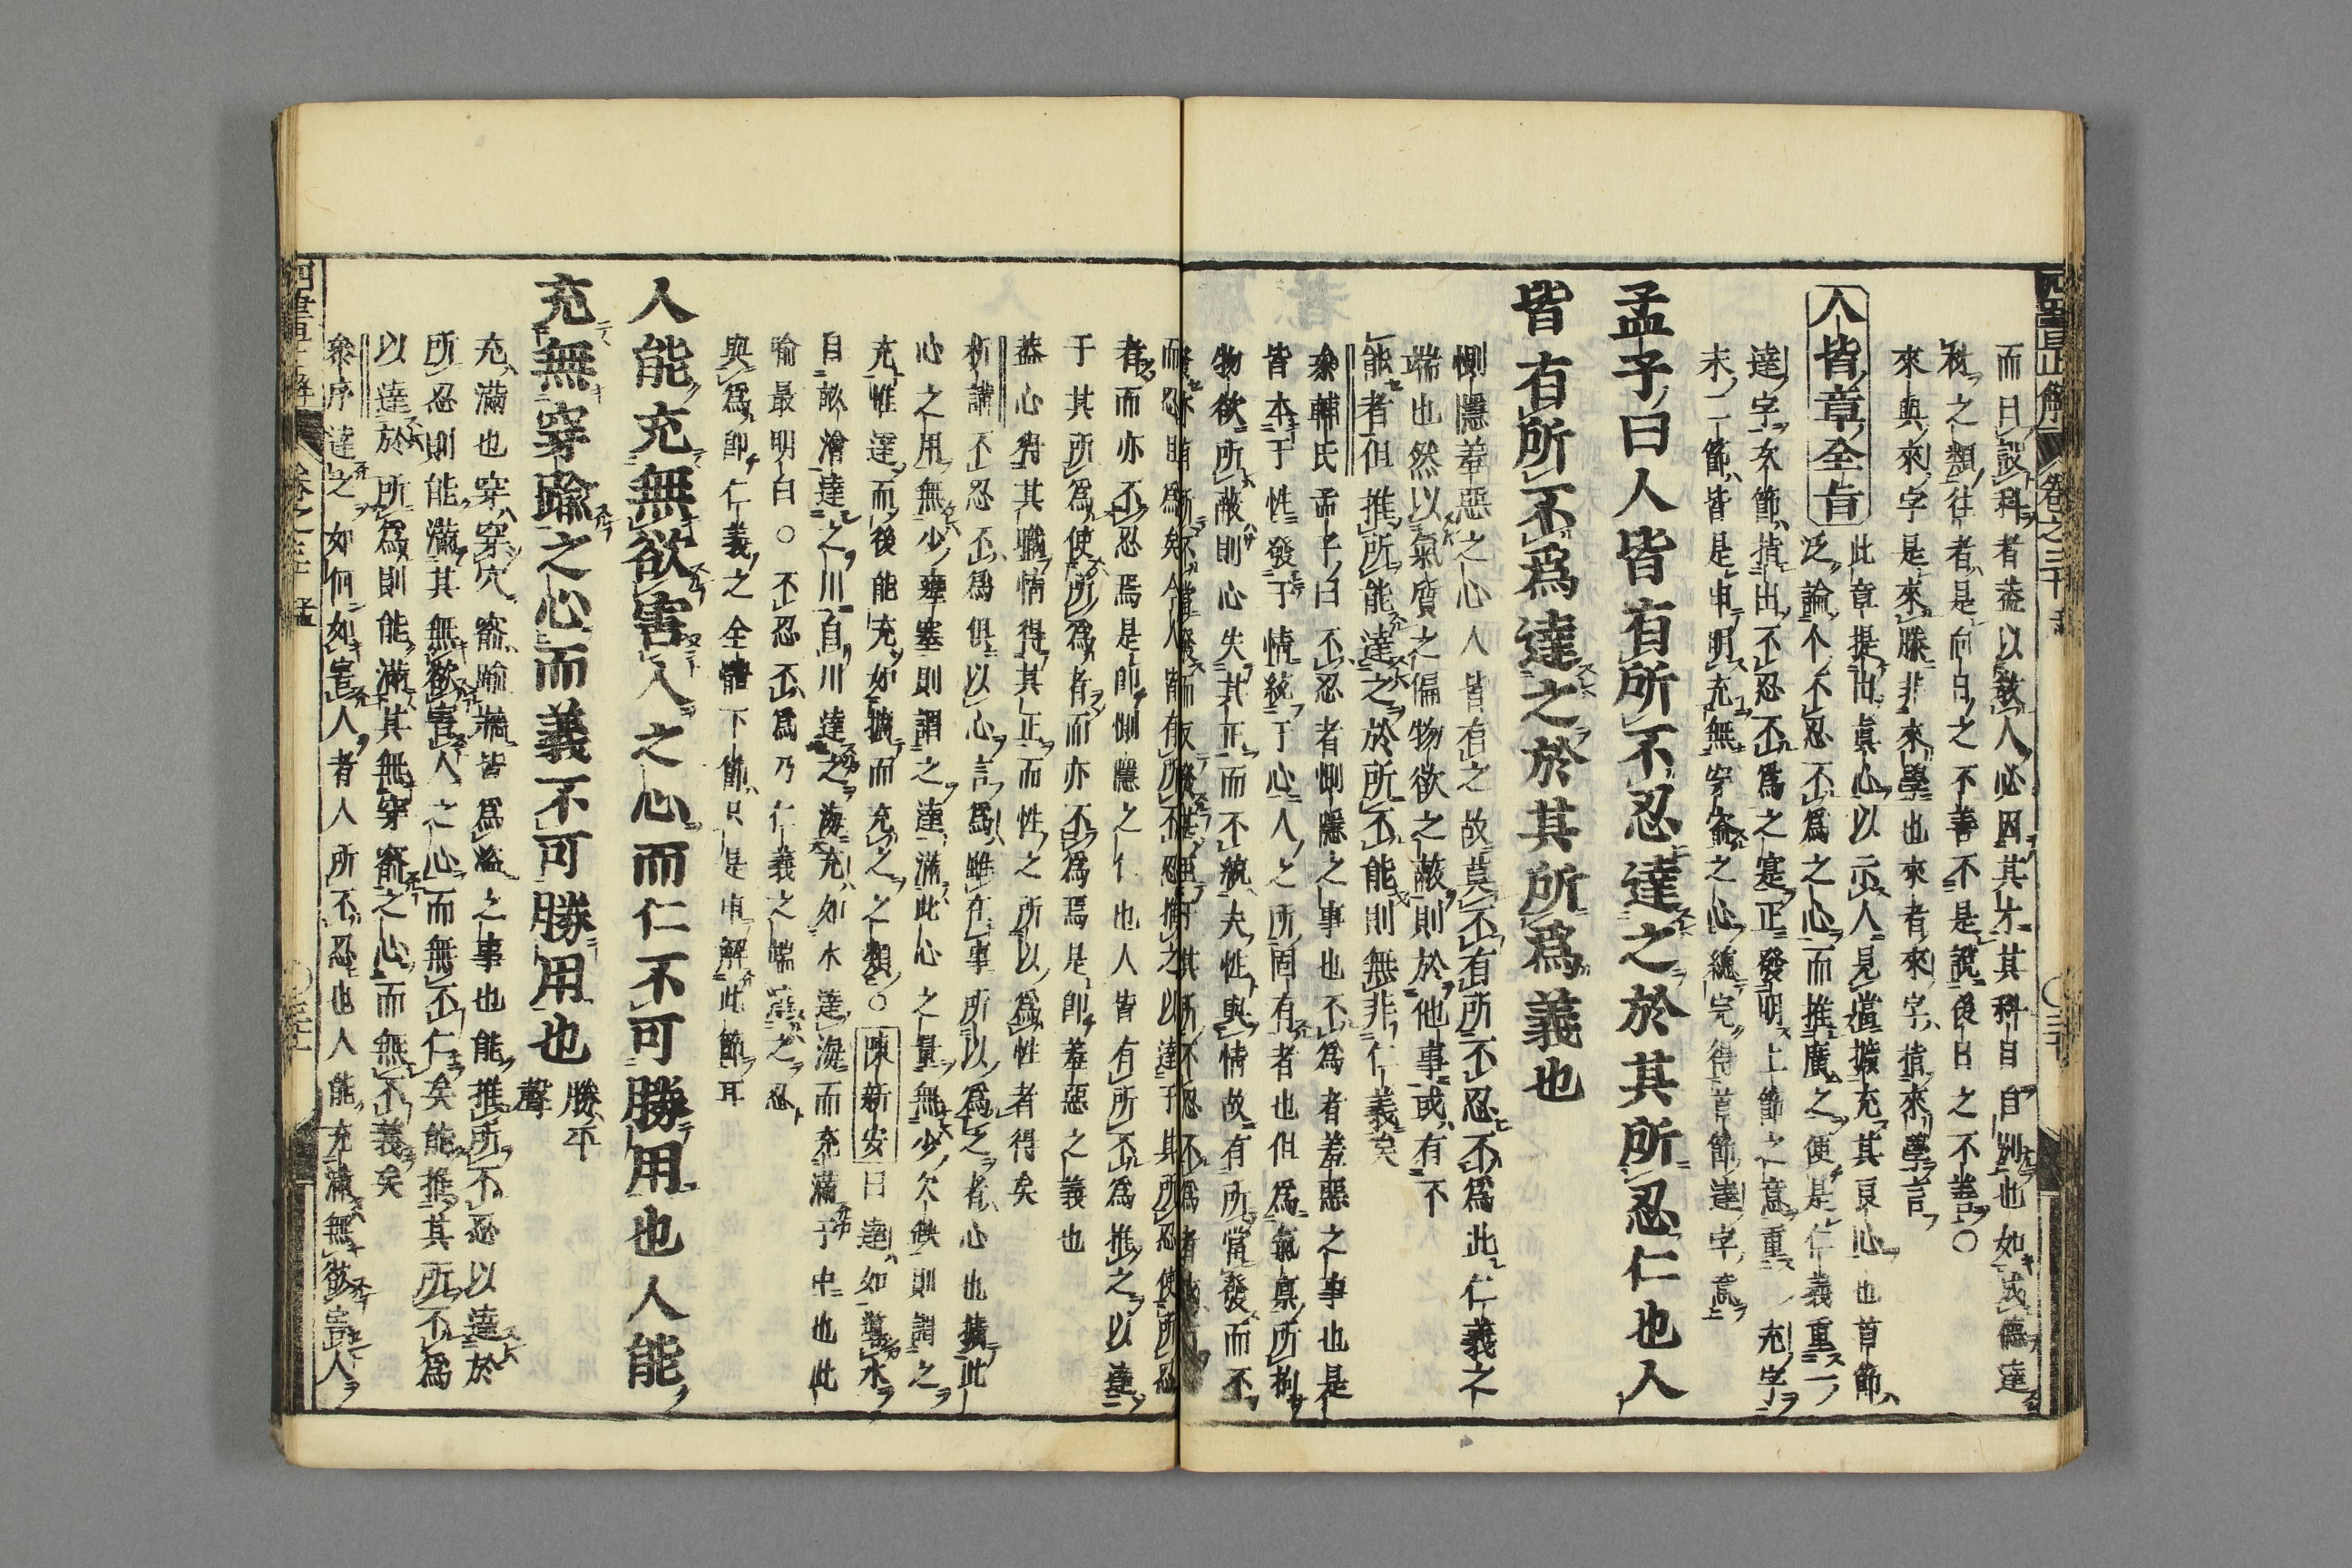 而曰設科者蓋以教人必因其才其科自自別也如成德達
材之類往者是向日之不善不是說後日之不善〇
來與來字是來游非來學也來者來字指來學言
人皆章全旨
此章提出真心以示人見當擴充其良心也首節
泛論个不忍不為之心而推廣之便是仁義重二
達字次節指出不忍不為之寔正發明上節之意重充字
末二節皆是申明充無穿窬之心總完得首節達字意
孟子曰人皆有所不忍達之於其所忍仁也人
皆有所不為達之於其所為義也
惻隱羞惡之心人皆有之故莫不有所不忍不為此仁義之
端也然以氣質之偏物欲之蔽則於他事或有不
能者但推所能達之於所不能則無非仁義矣
輔氏孟子曰不忍者惻隱之事也不為者羞惡之事也是
皆本于性發于情統于心人之所固有者也但為氣稟所拘
物欲所蔽則心失其正而不統夫性與情故有所當發而不
而忍且為矣今人皆有所不忍推之以達于其所忍使所忍
者而亦不忍焉是卽惻隱之仁也人皆有所不為推之以達
于其所為使所為者而亦不為焉是卽羞惡之義也
蓋心得其職情得其正而性之所以為性者得矣
新講不忍不為俱以心言為雖在事所以為之者心也擴此
心之用無少壅塞則謂之達滿此心之量無少欠缺則謂之
充惟達而後能充如擴而充之之類〇陳新安曰達如導水
自畝澮達之川自川達之海充如水達海而充滿于中也此
喻最明白〇不忍不為乃仁義之端達之忍
與為卽仁義之全體下節只是申解此節耳
人能充無欲害人之心而仁不可勝用也人能
充無穿踰之心而義不可勝用也
勝平
聲
充滿也穿穿穴窬踰牆皆為盜之事也能推所不忍以達於
所忍則能滿其無欲害人之心而無不仁矣能推其所不為
以達於所為則能滿其無穿窬之心而無不義矣
序達之如何如害人者人所不忍也人能充滿無欲害人